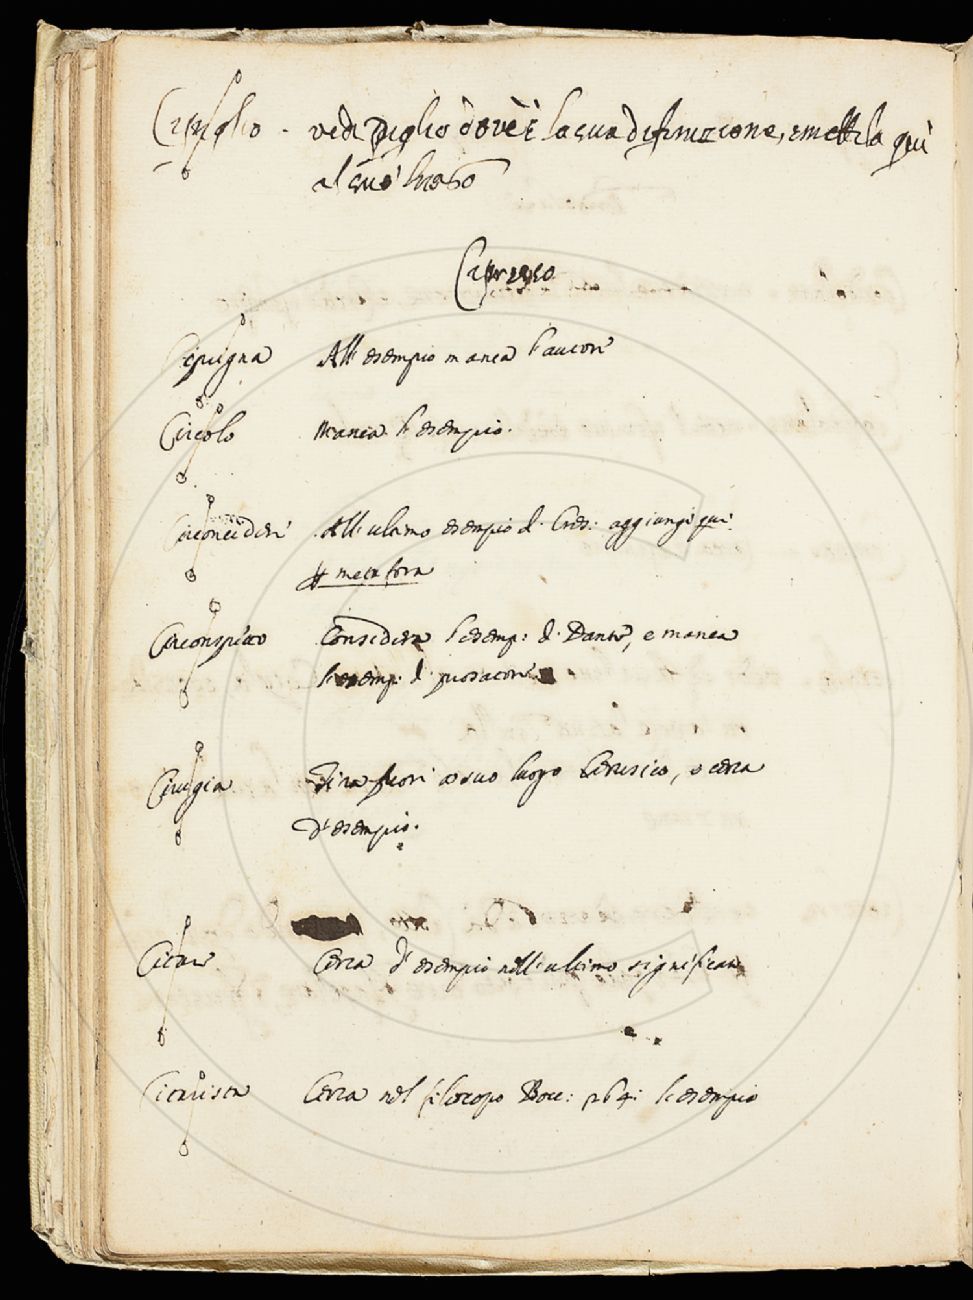 Capiglio - vedi Piglio dov'è la sua definizione, e mettila qui
al suo luogo
Cipresso
Cipigna All' esempio manca l'autore
Circolo manca l'esempio.
Circoncidere All' ultimo esempio d. Cres: aggiungi qui
# metafora
Circonspetto Considera l'esemp: d. Dante, e manca
l'esemp: d. prosatore
Cirugia Tira fuori a suo luogo Cerusico, e cerca
d'esempio.
Citare Cerca d'esempio nell' ultimo significato
Citarista Cerca nel filocopo Bocc: p. 64: l'esempio